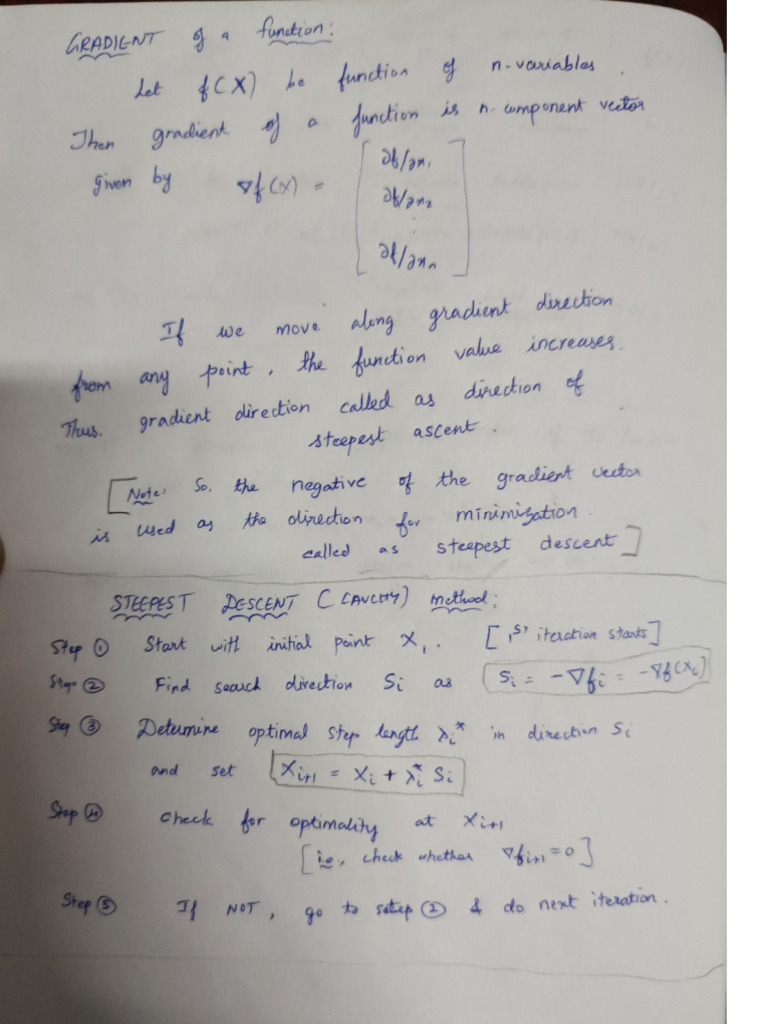 GRADIENT of a function:
Let f(X) be function of n-variables.
Then gradient of a function is n-component vector
given by ∇f(X) = [ ∂f/∂x₁
∂f/∂x₂
⋮
∂f/∂xₙ ]
If we move along gradient direction
from any point, the function value increases.
Thus. gradient direction called as direction of
steepest ascent
[Note: So, the negative of the gradient vector
is used as the direction for minimization.
called as steepest descent]
STEEPEST DESCENT (CAUCHY) method:
Step ① Start with initial point X₁. [1st iteration starts]
Step ② Find search direction Sᵢ as Sᵢ = -∇fᵢ = -∇f(Xᵢ)
Step ③ Determine optimal step length λᵢ* in direction Sᵢ
and set Xᵢ₊₁ = Xᵢ + λᵢ* Sᵢ
Step ④ Check for optimality at Xᵢ₊₁
[i.e., check whether ∇fᵢ₊₁ = 0]
Step ⑤ If NOT, go to setep ② & do next iteration.